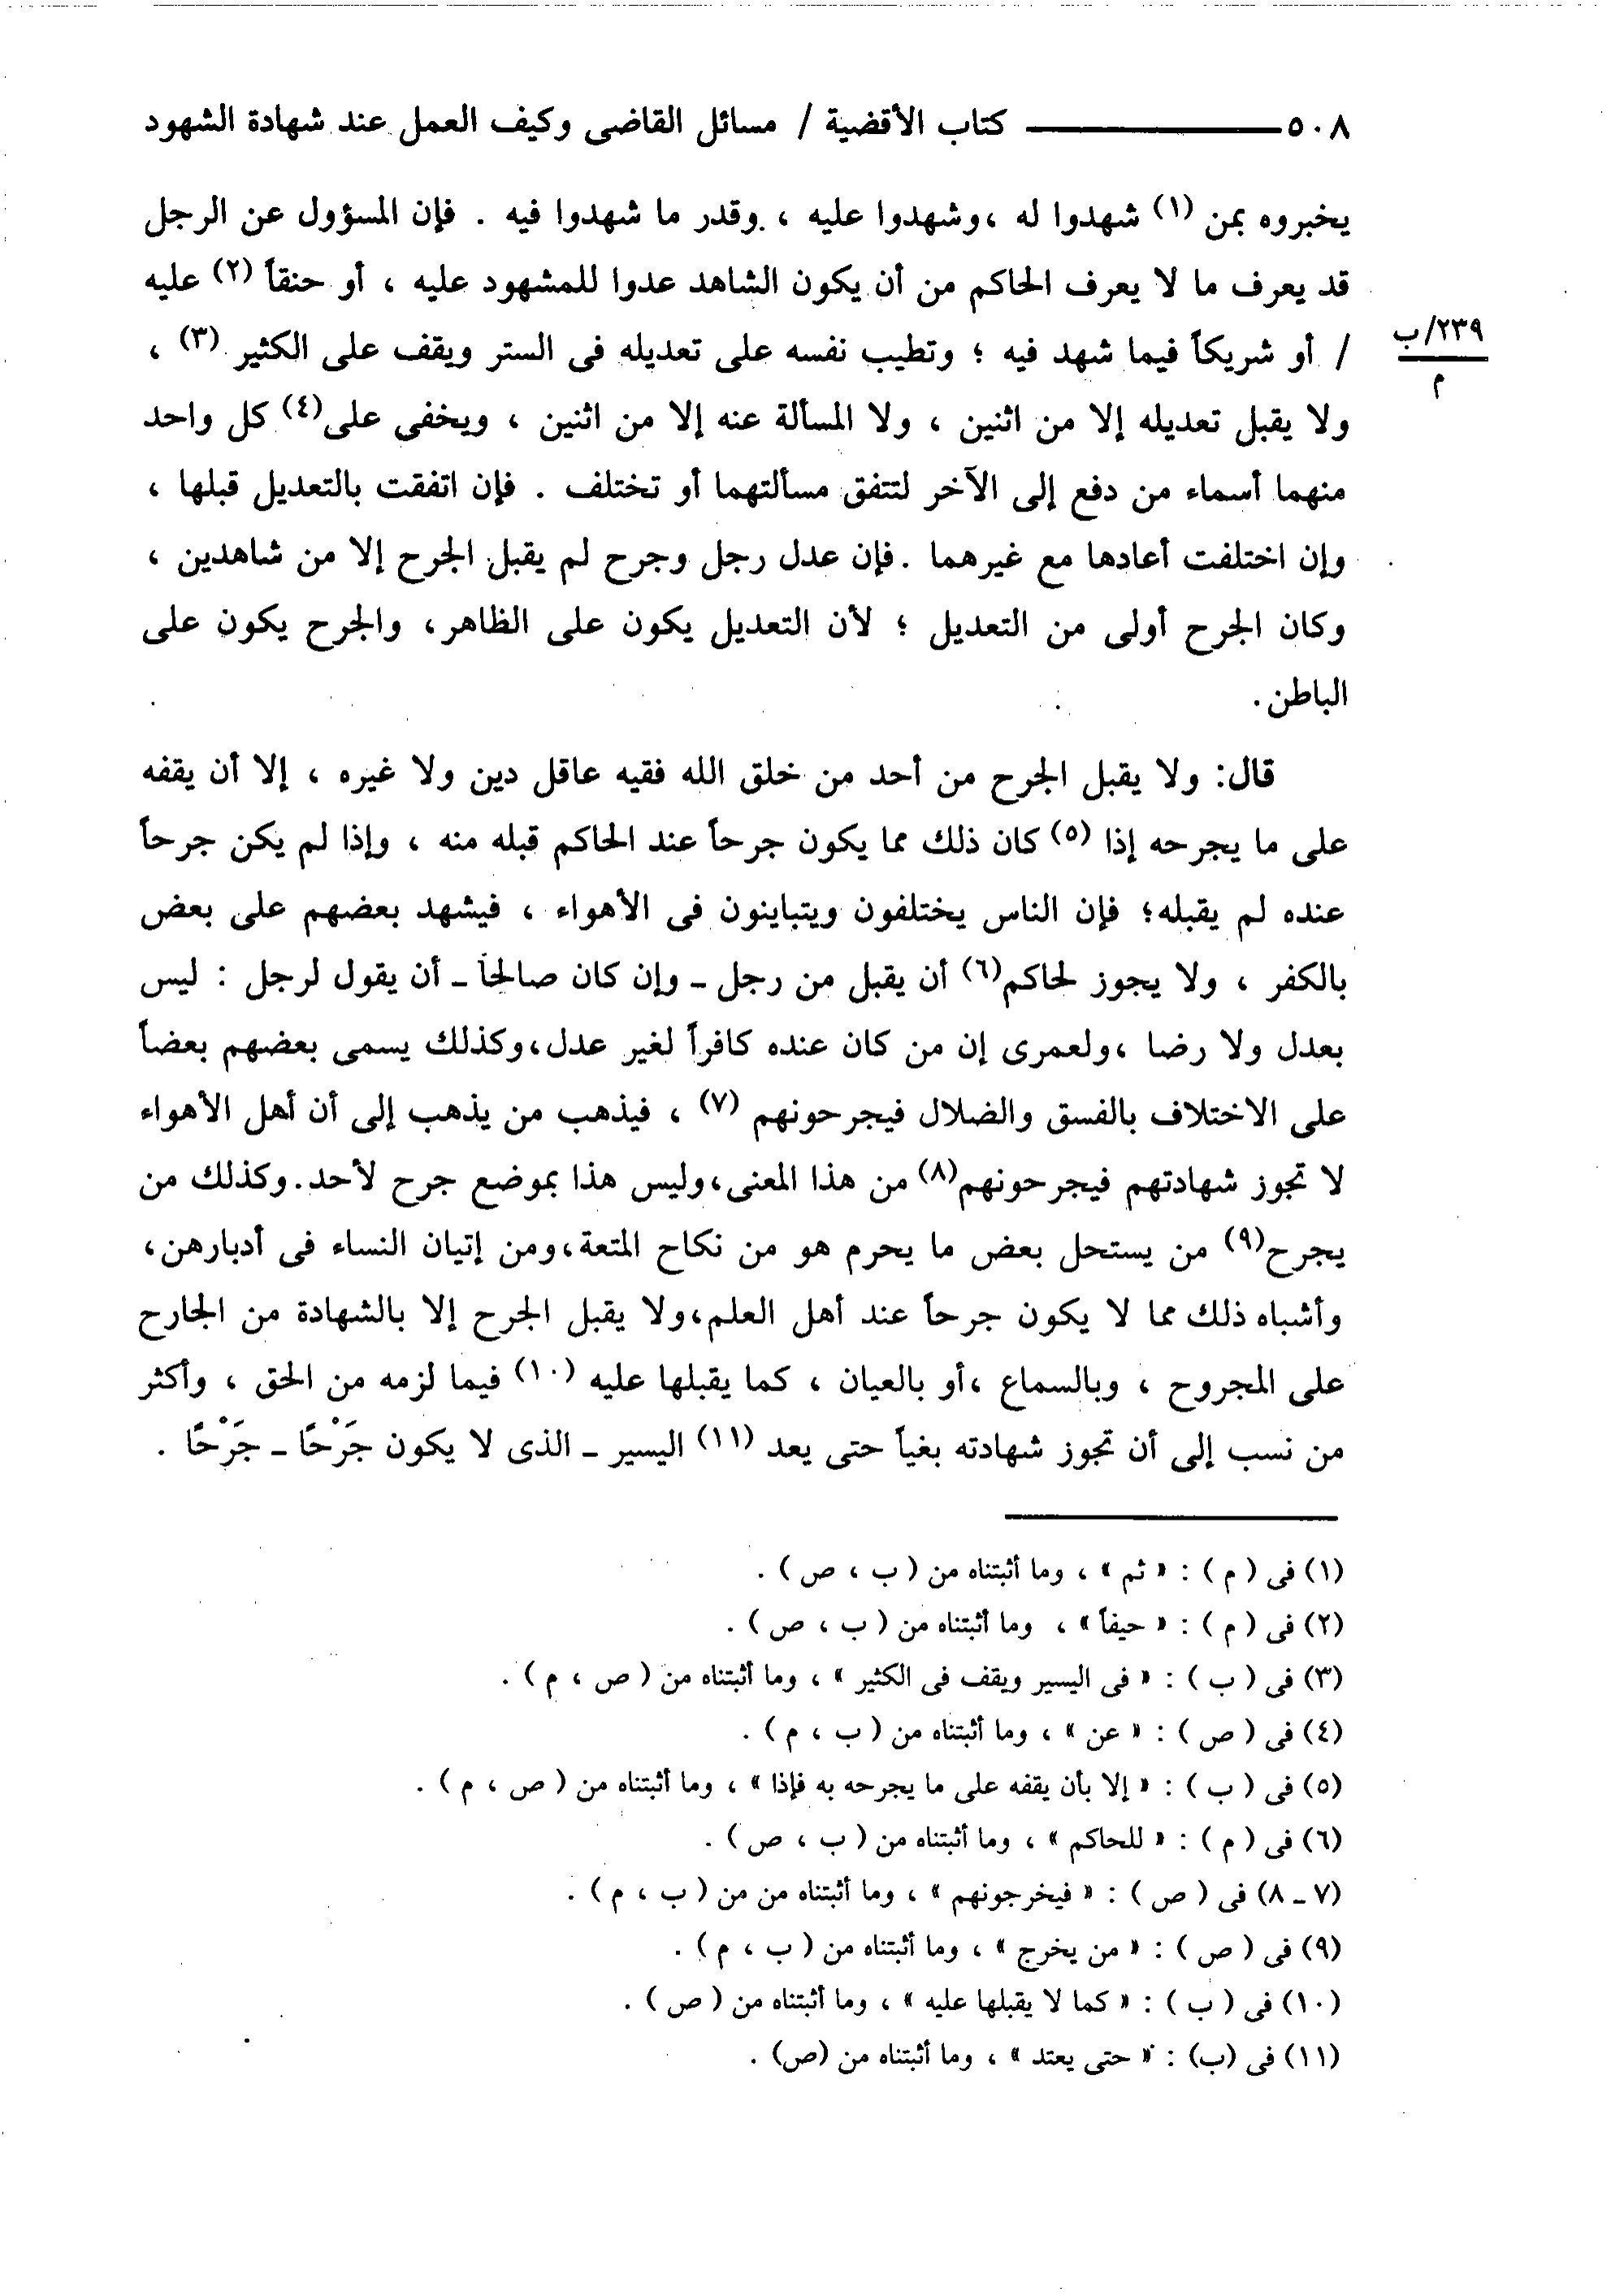 ٥٠٨ ــــــــــ كتاب الأقضية / مسائل القاضى وكيف العمل عند شهادة الشهود
يخبروه بمن (١) شهدوا له ،وشهدوا عليه ، وقدر ما شهدوا فيه . فإن المسؤول عن الرجل
قد يعرف ما لا يعرف الحاكم من أن يكون الشاهد عدوا للمشهود عليه ، أو حنقاً (٢) عليه
٢٣٩/ب
م
/ أو شريكاً فيما شهد فيه ؛ وتطيب نفسه على تعديله فى الستر ويقف على الكثير (٣) ،
ولا يقبل تعديله إلا من اثنين ، ولا المسألة عنه إلا من اثنين ، ويخفى على(٤) كل واحد
منهما أسماء من دفع إلى الآخر لتتفق مسألتهما أو تختلف . فإن اتفقت بالتعديل قبلها ،
وإن اختلفت أعادها مع غيرهما .فإن عدل رجل وجرح لم يقبل الجرح إلا من شاهدين ،
وكان الجرح أولى من التعديل ؛ لأن التعديل يكون على الظاهر، والجرح يكون على
الباطن.
قال: ولا يقبل الجرح من أحد من خلق الله فقيه عاقل دين ولا غيره ، إلا أن يقفه
على ما يجرحه إذا (٥) كان ذلك مما يكون جرحاً عند الحاكم قبله منه ، وإذا لم يكن جرحاً
عنده لم يقبله؛ فإن الناس يختلفون ويتباينون فى الأهواء ، فيشهد بعضهم على بعض
بالكفر ، ولا يجوز لحاكم(٦) أن يقبل من رجل ـ وإن كان صالحاً ـ أن يقول لرجل : ليس
بعدل ولا رضا ،ولعمرى إن من كان عنده كافراً لغير عدل،وكذلك يسمى بعضهم بعضاً
على الاختلاف بالفسق والضلال فيجرحونهم (٧) ، فيذهب من يذهب إلى أن أهل الأهواء
لا تجوز شهادتهم فيجرحونهم(٨) من هذا المعنى،وليس هذا بموضع جرح لأحد.وكذلك من
يجرح(٩) من يستحل بعض ما يحرم هو من نكاح المتعة،ومن إتيان النساء فى أدبارهن،
وأشباه ذلك مما لا يكون جرحاً عند أهل العلم،ولا يقبل الجرح إلا بالشهادة من الجارح
على المجروح ، وبالسماع ،أو بالعيان ، كما يقبلها عليه (١٠) فيما لزمه من الحق ، وأكثر
من نسب إلى أن تجوز شهادته بغياً حتى يعد (١١) اليسير ـ الذى لا يكون جَرْحًا ـ جَرْحًا .
(١) فى ( م ) : « ثم » ، وما أثبتناه من ( ب ، ص ) .
(٢) فى ( م ) : « حيفاً » ، وما أثبتناه من ( ب ، ص ) .
(٣) فى ( ب ) : « فى اليسير ويقف فى الكثير » ، وما أثبتناه من ( ص ، م ) .
(٤) فى ( ص ) : « عن » ، وما أثبتناه من ( ب ، م ) .
(٥) فى ( ب ) : « إلا بأن يقفه على ما يجرحه به فإذا » ، وما أثبتناه من ( ص ، م ) .
(٦) فى ( م ) : « للحاكم » ، وما أثبتناه من ( ب ، ص ) .
(٧ ـ ٨) فى ( ص ) : « فيخرجونهم » ، وما أثبتناه من من ( ب ، م ) .
(٩) فى ( ص ) : « من يخرج » ، وما أثبتناه من ( ب ، م ) .
(١٠) فى ( ب ) : « كما لا يقبلها عليه » ، وما أثبتناه من ( ص ) .
(١١) فى (ب) : « حتى يعتد » ، وما أثبتناه من (ص) .